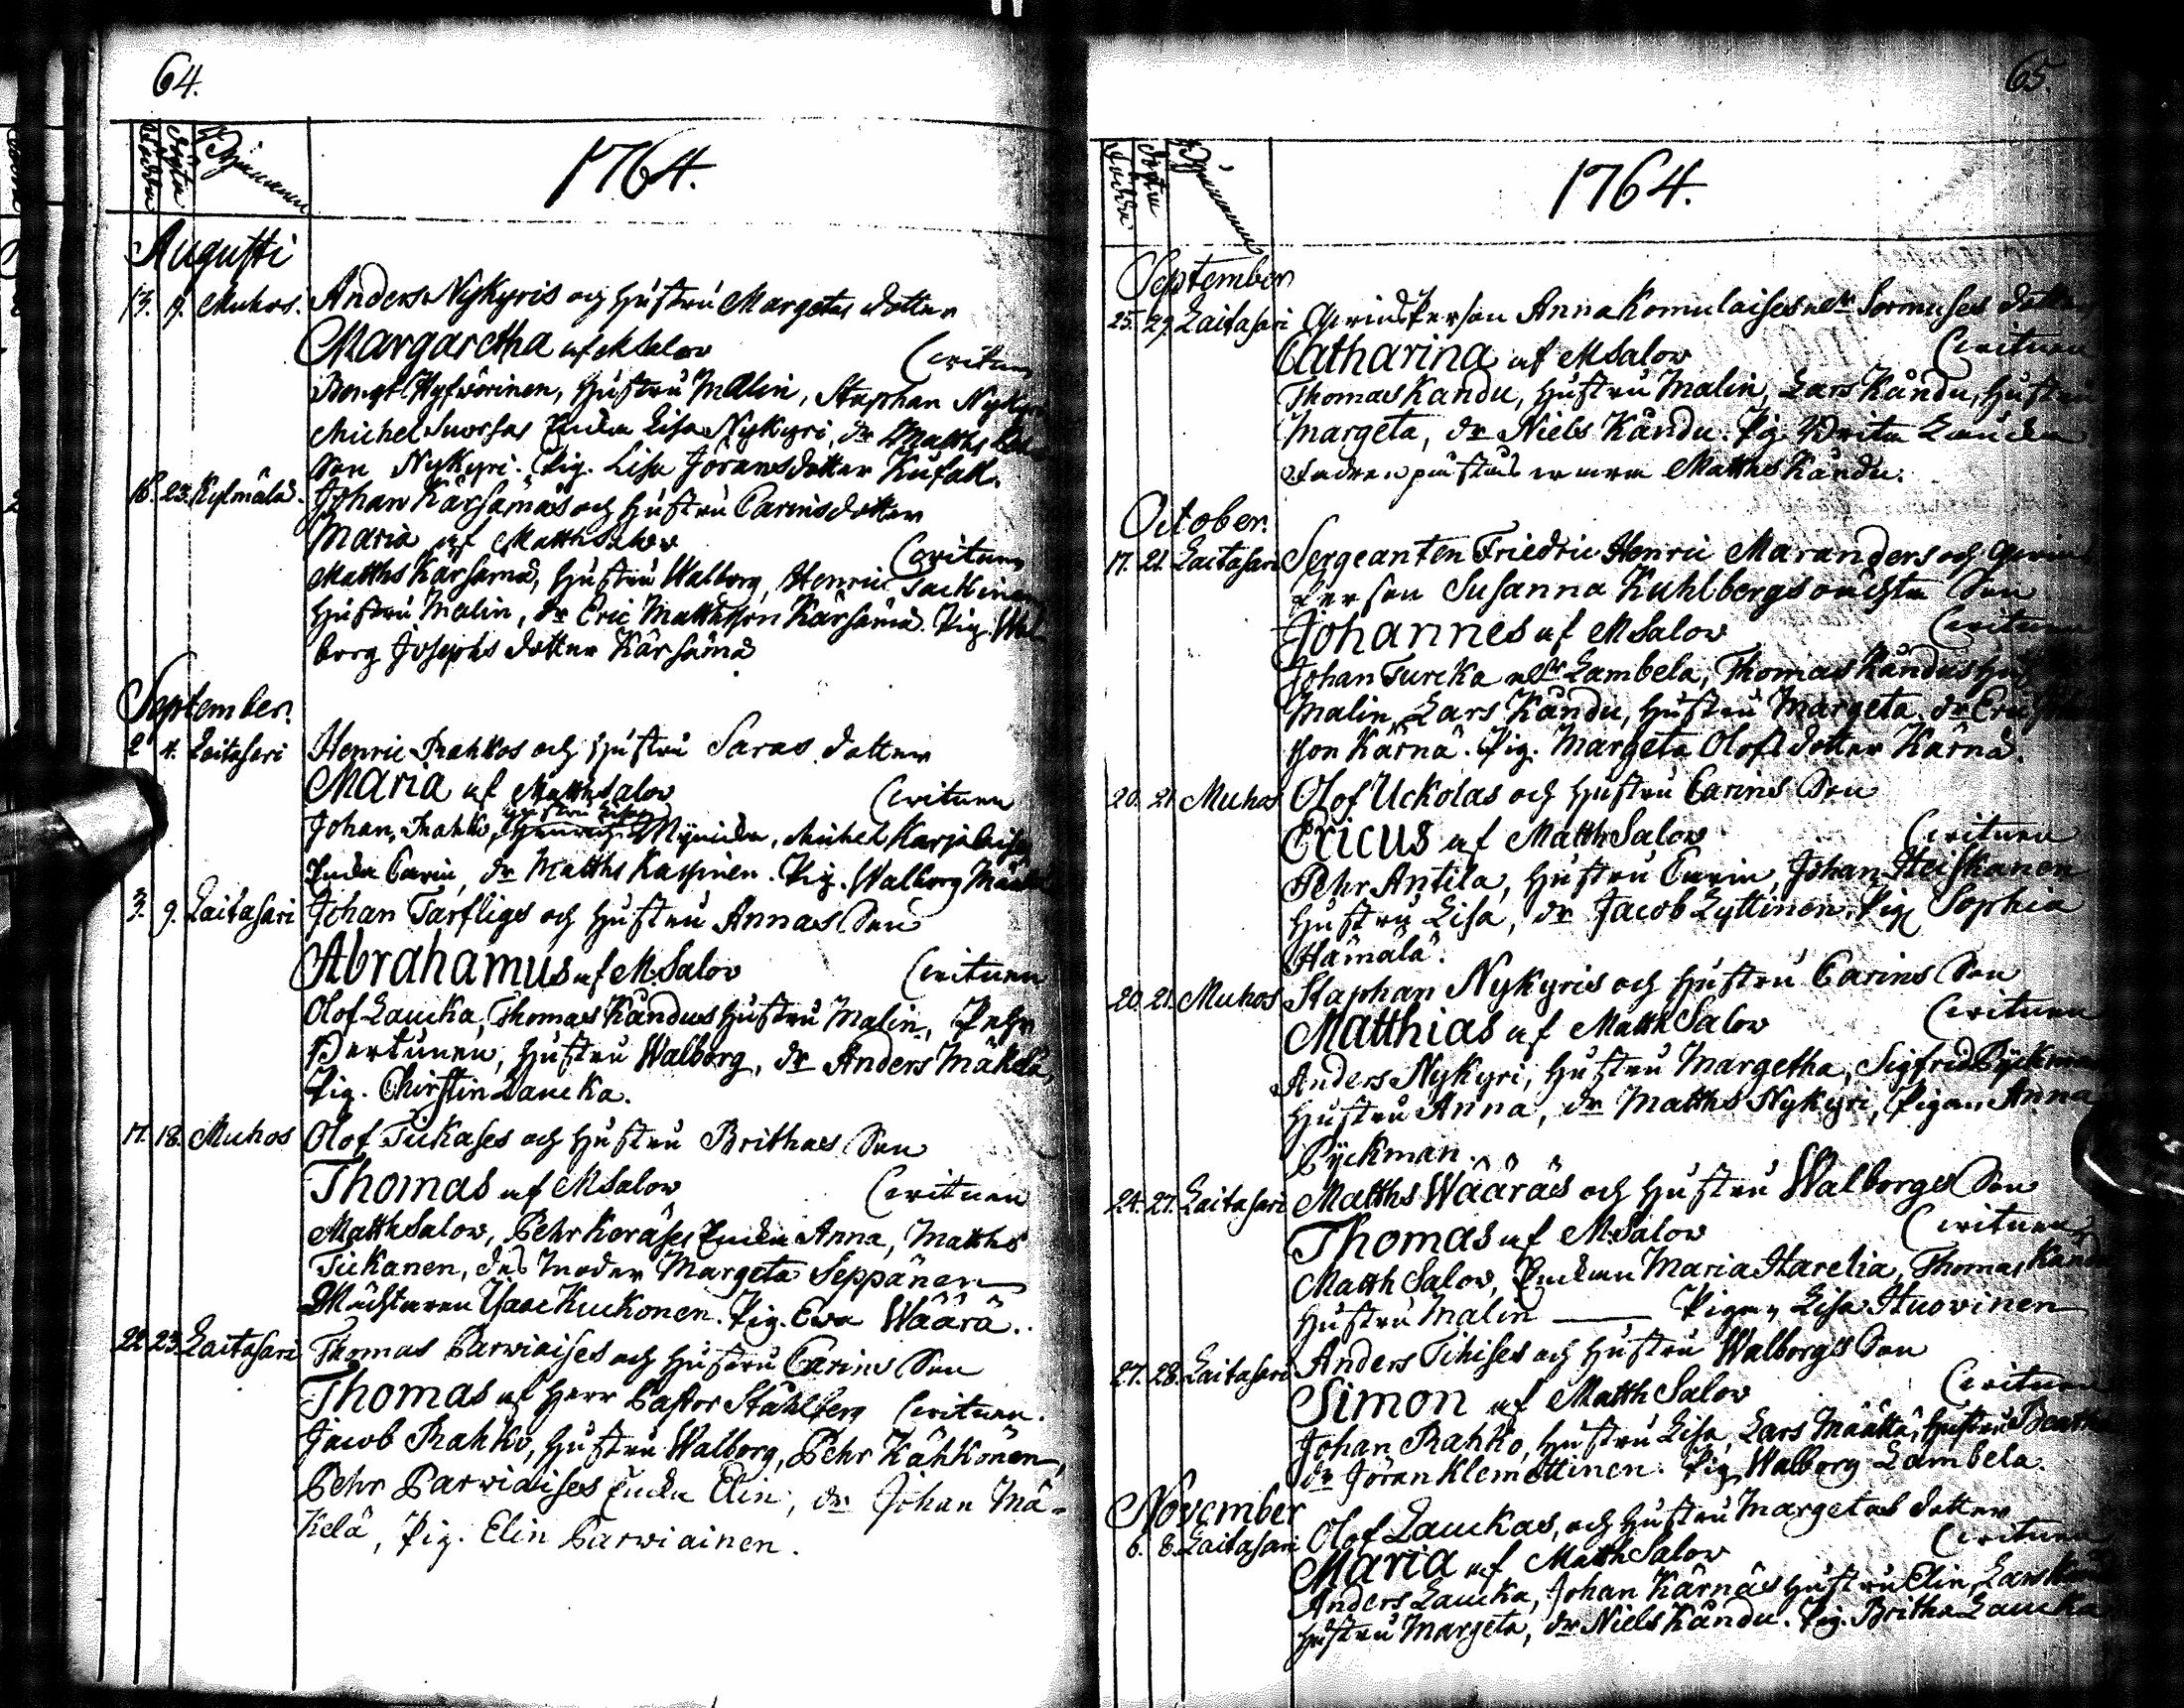 64.
1764.
Augusti
13. 9. Muhos. Anders Nykyris och hustru Margetas dotter
Margaretha af M Salov
Bengt Hyfvörinen, hustru Malin, Staphan Nykyri
Michel Enka Lisa Nykyri, dr Matths
Son Nykyri. Pig. Lisa Jöransdotter
16. 23. Kylmälä. Johan Kärsämäs och hustru Carins dotter
Maria af Matth Salov
Matths Kärsämä, hustru Walborg, Henric
hustru Malin, dr Eric Matthsson Kärsämä. Pig. Wal
borg Josephs dotter Kärsämä
September.
2 4. Laitasari Henric Rahkos och hustru Saras dotter
Maria af Matth Salov
Johan Rahko, Michel Karjalaises
Enka Carin, dr Matths Kaspinen. Pig. Walborg
3. 9. Laitasari Johan Tarfliges och hustru Annas Son
Abrahamus af M. Salov
Olof Laucka, Thomas Kändus hustru Malin, Pehr
Pertunen, hustru Walborg, dr Anders Mäkelä,
Pig. Chirstin Laucka.
17. 18. Muhos Olof Tickases och hustru Brithas Son
Thomas af M Salov
Matth Salov, Pehr Keräses Enka Anna, Matths
Tickanen, des moder Margeta Seppänen
Isaac Kuckonen. Pig. Ewa Wäärä.
22 23. Laitasari Thomas Parwiaises och hustru Carins Son
Thomas af Herr Pastor Ståhlberg
Jacob Rahko, hustru Walborg, Pehr Kähkönen,
Pehr Parwiaises Enka Elin, dr Johan Mä-
kelä, Pig. Elin Parwiainen.
65.
1764.
September
25. 29. Laitasari Anna Komulaises Sormuses dotter
Catharina af M Salov
Thomas Kändu, hustru Malin, Lars Kändu, hustru
Margeta, dr Niels Kändu. Pig.
Matths Kändu.
October.
17. 21. Laitasari Sergeanten Friedric Henric Maranders och
person Susanna Kuhlbergs oächta Son
Johannes af M Salov
Johan Turcka Lambela, Thomas Kändus
Malin, Lars Kändu, hustru Margeta, dr
sson Kärnä. Pig. Margeta Olofsdotter Kärnä.
20. 21 Muhos Olof Uckolas och hustru Carins Son
Ericus af Matth Salov
Pehr Antila, hustru Carin, Johan Heiskanen
hustru Lisa, dr Jacob Lyttinen, Pig. Sophia
Hämälä.
20. 21. Muhos Staphan Nykyris och hustru Carins Son
Matthias af Matth Salov
Anders Nykyri, hustru Margetha, Sigfred Pyckman
hustru Anna, dr Matths Nykyri, Pigan Anna
Pyckman.
24. 27. Laitasari Matths Wääräs och hustru Walborgs Son
Thomas af M. Salov
Matth Salov, Enkan Maria Harelia, Thomas
hustru Malin —— Pigan Lisa Huovinen
27. 28. Laitasari Anders Tihises och hustru Walborgs Son
Simon af Matth Salov
Johan Rahko, hustru Lisa, Lars Määttä, hustru
dr Jöran Klemettinen. Pig. Walborg Lambela.
November
6. 8. Laitasari Olof Lauckas, och hustru Margetas dotter
Maria af Matth Salov
Anders Laucka, Johan Kärnäs hustru Elin, Lars
hustru Margeta, dr Niels Kändu. Pig. Britha Laucka